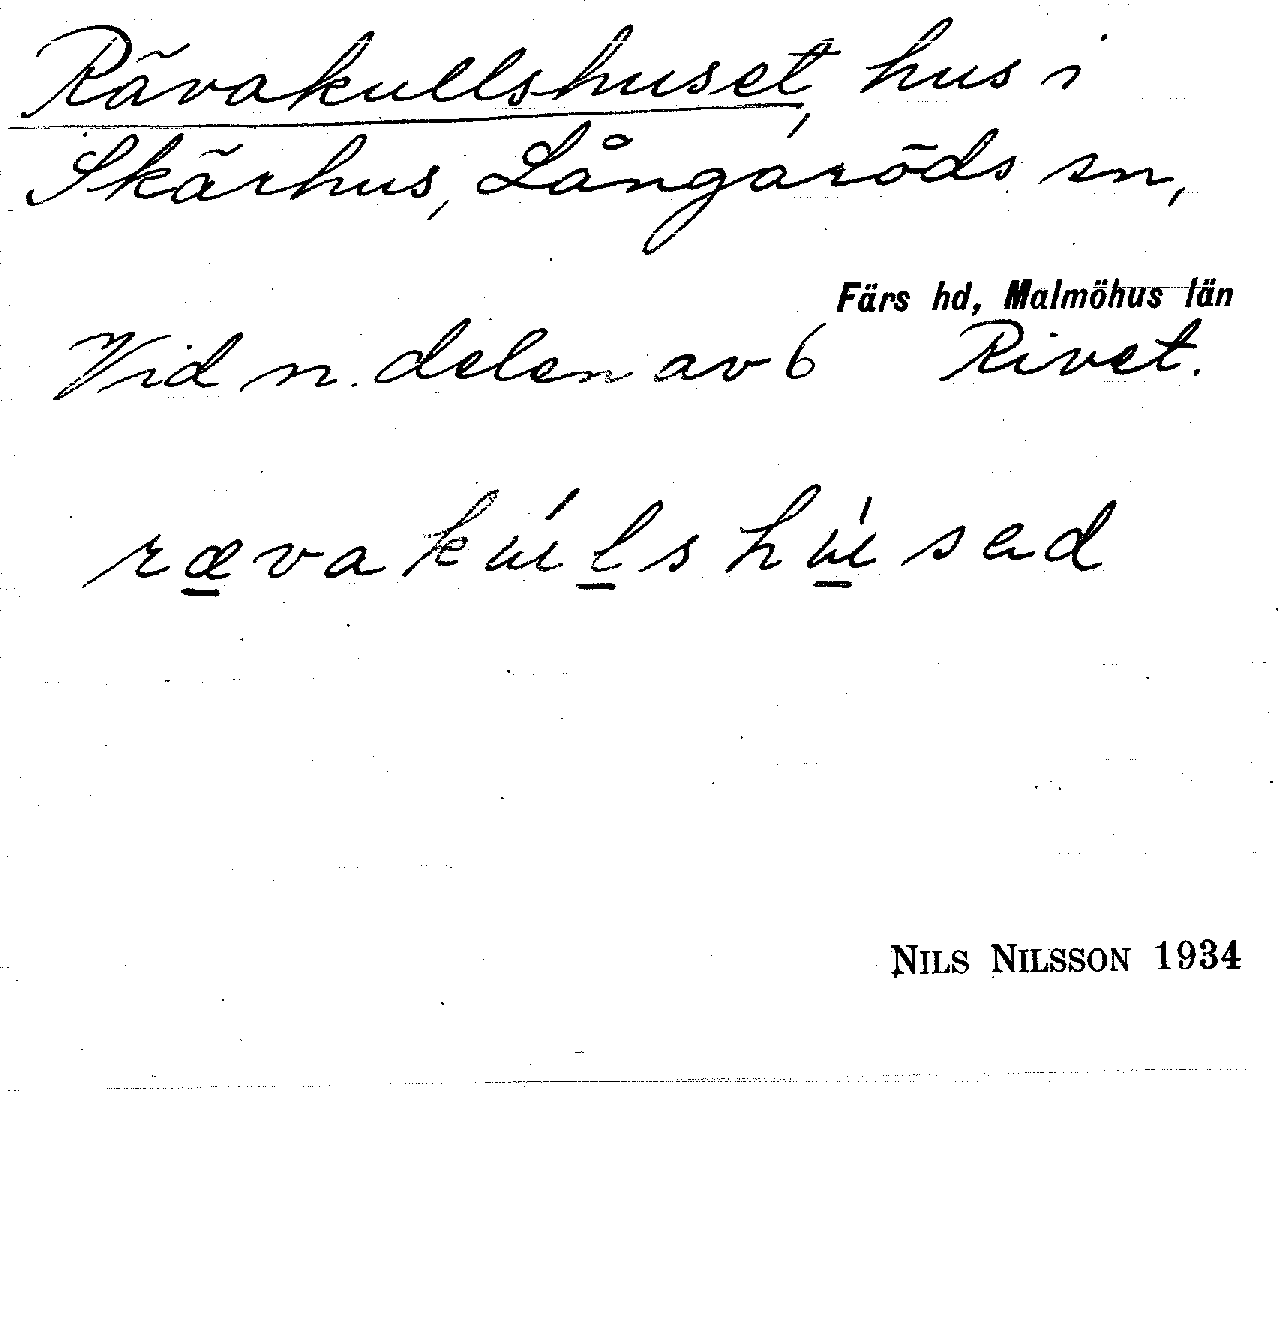 Rävakullshuset, hus i
Skärhus, Långaröds sn,
Färs hd, Malmöhus län
Vid n. delen av 6 Rivet.
rævakúlshúsad
NILS NILSSON 1934